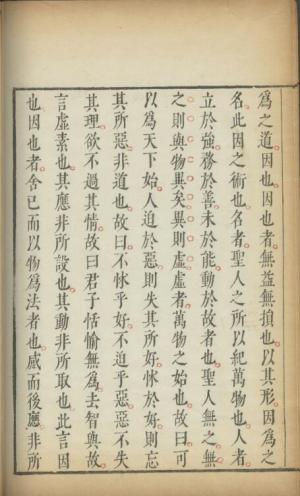 爲之道因也因也者無益無損也以其形因爲之
名此因之術也名者聖人之所以紀萬物也人者
立於強務於善未於能動於故者也聖人無之無
之則與物異矣異則虛虛者萬物之始也故曰可
以爲天下始人迫於惡則失其所好怵於好則忘
其所惡非道也故曰不怵乎好不迫乎惡惡不失
其理欲不過其情故曰君子恬愉無爲去智與故
言虛素也其應非所設也其動非所取也此言因
也因也者舍已而以物爲法者也感而後應非所